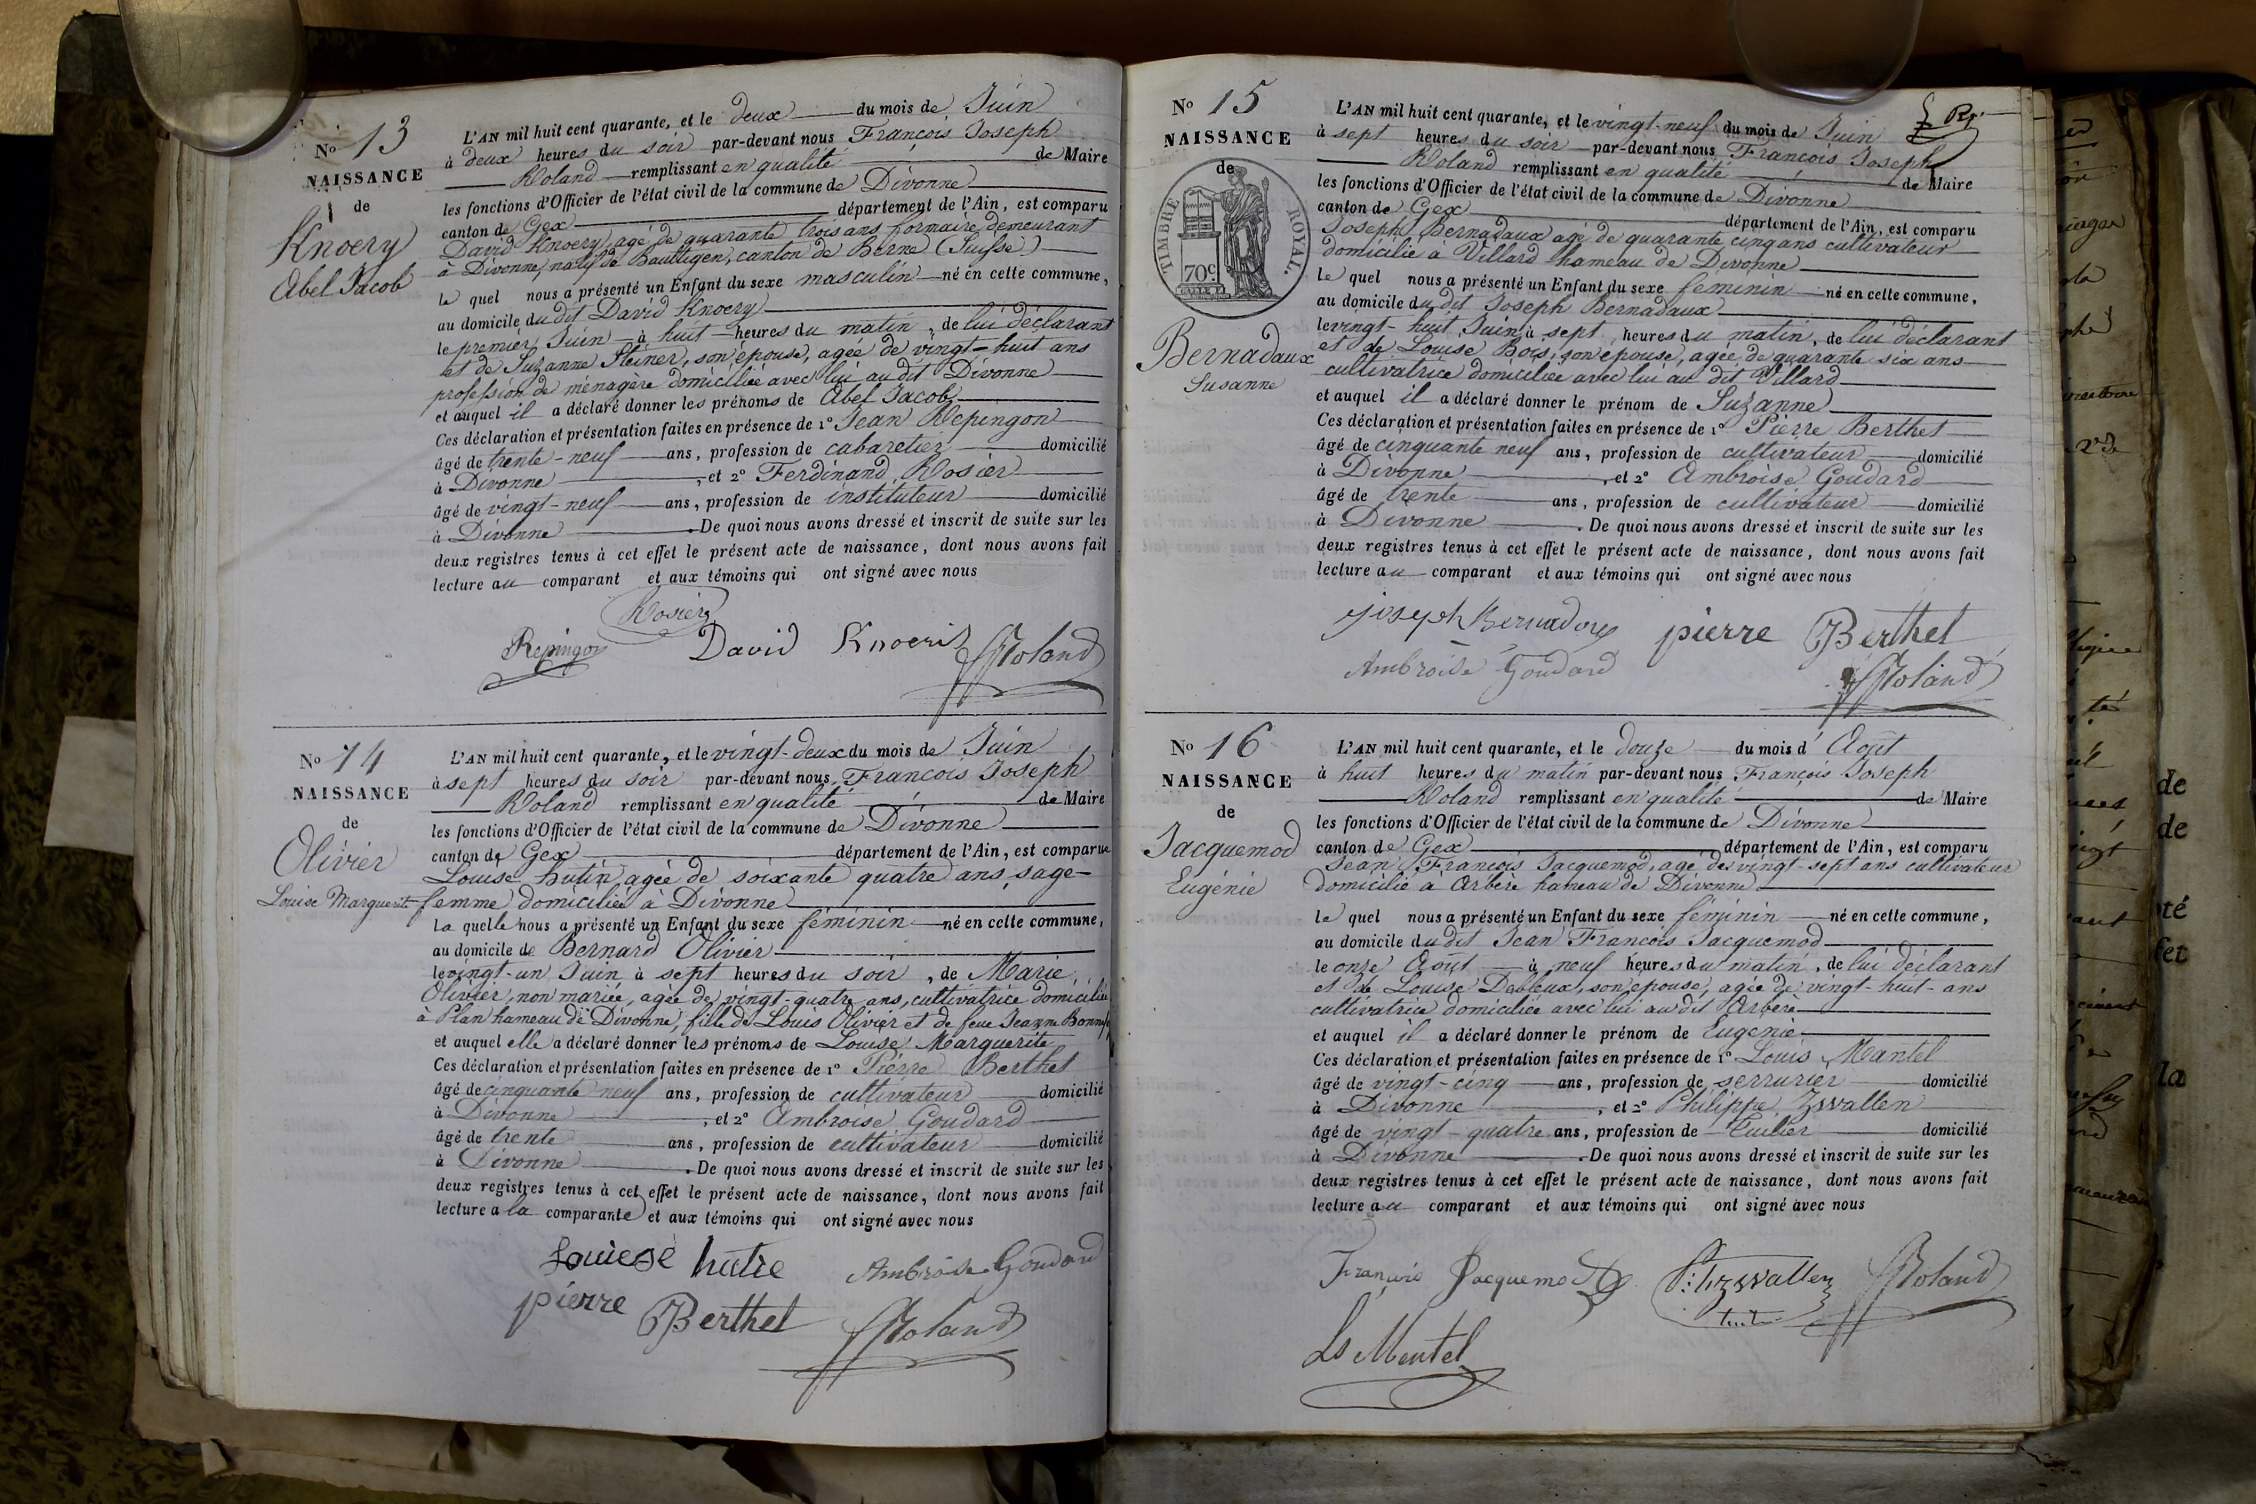 No 13
NAISSANCE
de
Knoery
Abel Jacob
L'AN mil huit cent quarante, et le deux du mois de Juin
à deux heures du soir par-devant nous François Joseph
Roland remplissant en qualité de Maire
les fonctions d'Officier de l'état civil de la commune de Divonne
canton de Gex département de l'Ain, est comparu
David Knoery, agé de quarante trois ans, formaire, demeurant
à Divonne, natif de canton de Berne (Suisse)
le quel nous a présenté un Enfant du sexe masculin né en cette commune,
au domicile du dit David Knoery
le premier Juin à huit heures du matin, de lui déclarant
et de Suzanne Steiner, son épouse, agée de vingt-huit ans
profession de ménagère domiciliée avec lui au dit Divonne
et auquel il a déclaré donner les prénoms de Abel Jacob
Ces déclaration et présentation faites en présence de 1º Jean Repingon
âgé de trente-neuf ans, profession de cabaretier domicilié
à Divonne, et 2º Ferdinand Rosier
âgé de vingt-neuf ans, profession de instituteur domicilié
à Divonne. De quoi nous avons dressé et inscrit de suite sur les
deux registres tenus à cet effet le présent acte de naissance, dont nous avons fait
lecture au comparant et aux témoins qui ont signé avec nous
Rosier
Repingon David Knoeri Roland
No 14
NAISSANCE
de
Olivier
Louise Marguerite
L'AN mil huit cent quarante, et le vingt-deux du mois de Juin
à sept heures du soir par-devant nous François Joseph
Roland remplissant en qualité de Maire
les fonctions d'Officier de l'état civil de la commune de Divonne
canton de Gex département de l'Ain, est comparue
Louise hutin, agée de soixante quatre ans, sage-
femme domiciliée à Divonne
la quelle nous a présenté un Enfant du sexe féminin né en cette commune,
au domicile de Bernard Olivier
le vingt-un Juin à sept heures du soir, de Marie
Olivier, non mariée, agée de vingt-quatre ans, cultivatrice domiciliée
à Plan hameau de Divonne, fille de Louis Olivier et de feue Jeanne
et auquel elle a déclaré donner les prénoms de Louise Marguerite
Ces déclaration et présentation faites en présence de 1º Pierre Berthet
âgé de cinquante neuf ans, profession de cultivateur domicilié
à Divonne, et 2º Ambroise Goudard
âgé de trente ans, profession de cultivateur domicilié
à Divonne. De quoi nous avons dressé et inscrit de suite sur les
deux registres tenus à cet effet le présent acte de naissance, dont nous avons fait
lecture a la comparante et aux témoins qui ont signé avec nous
Louiese hutre Ambroise Goudard
pierre Berthet Roland
No 15
NAISSANCE
de
TIMBRE ROYAL.
70c
Bernadaux
Susanne
L'AN mil huit cent quarante, et le vingt-neuf du mois de Juin
à sept heures du soir par-devant nous François Joseph
Roland remplissant en qualité de Maire
les fonctions d'Officier de l'état civil de la commune de Divonne
canton de Gex département de l'Ain, est comparu
Joseph Bernadaux agé de quarante cinq ans cultivateur
domicilié à Villard hameau de Divonne
le quel nous a présenté un Enfant du sexe féminin né en cette commune,
au domicile du dit Joseph Bernadaux
le vingt-huit Juin à sept heures du matin, de lui déclarant
et de Louise Bois, son épouse, agée de quarante six ans
cultivatrice domiciliée avec lui au dit Villard
et auquel il a déclaré donner le prénom de Suzanne
Ces déclaration et présentation faites en présence de 1º Pierre Berthet
âgé de cinquante neuf ans, profession de cultivateur domicilié
à Divonne, et 2º Ambroise Goudard
âgé de trente ans, profession de cultivateur domicilié
à Divonne. De quoi nous avons dressé et inscrit de suite sur les
deux registres tenus à cet effet le présent acte de naissance, dont nous avons fait
lecture au comparant et aux témoins qui ont signé avec nous
joseph Bernadoux pierre Berthet
Ambroise Goudard Roland
No 16
NAISSANCE
de
Jacquemod
Eugénie
L'AN mil huit cent quarante, et le douze du mois d'Août
à huit heures du matin par-devant nous François Joseph
Roland remplissant en qualité de Maire
les fonctions d'Officier de l'état civil de la commune de Divonne
canton de Gex département de l'Ain, est comparu
Jean François Jacquemod, agé de vingt-sept ans cultivateur
domicilié à Arbère hameau de Divonne
le quel nous a présenté un Enfant du sexe féminin né en cette commune,
au domicile du dit Jean François Jacquemod
le onze Août à neuf heures du matin, de lui déclarant
et de Louise son épouse, agée de vingt-huit-ans
cultivatrice domiciliée avec lui au dit Arbère
et auquel il a déclaré donner le prénom de Eugénie
Ces déclaration et présentation faites en présence de 1º Louis Mantel
âgé de vingt-cinq ans, profession de serrurier domicilié
à Divonne, et 2º Philippe Zwallen
âgé de vingt-quatre ans, profession de Tuilier domicilié
à Divonne. De quoi nous avons dressé et inscrit de suite sur les
deux registres tenus à cet effet le présent acte de naissance, dont nous avons fait
lecture au comparant et aux témoins qui ont signé avec nous
François Jacquemod Roland
Ls Mentel
de
de
té
fet
la